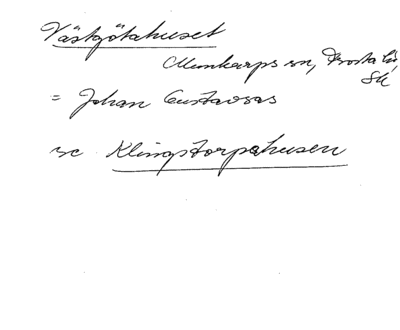 Västgötahuset
Munkarps sn, Frosta hd,
Sk
= Johan Gustavsas
se Klingstorpahusen